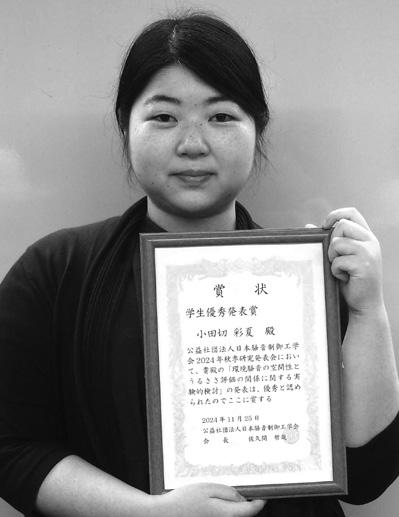 賞　状
学生優秀発表賞
小田切 彩夏 殿
公益社団法人日本騒音制御工学
会2024年秋季研究発表会におい
て、貴殿の「環境騒音の空間性と
うるささ評価の関係に関する実
験的検討」の発表は、優秀と認め
られたのでここに賞する
2024年11月25日
公益社団法人日本騒音制御工学会
会　長　佐久間 哲哉